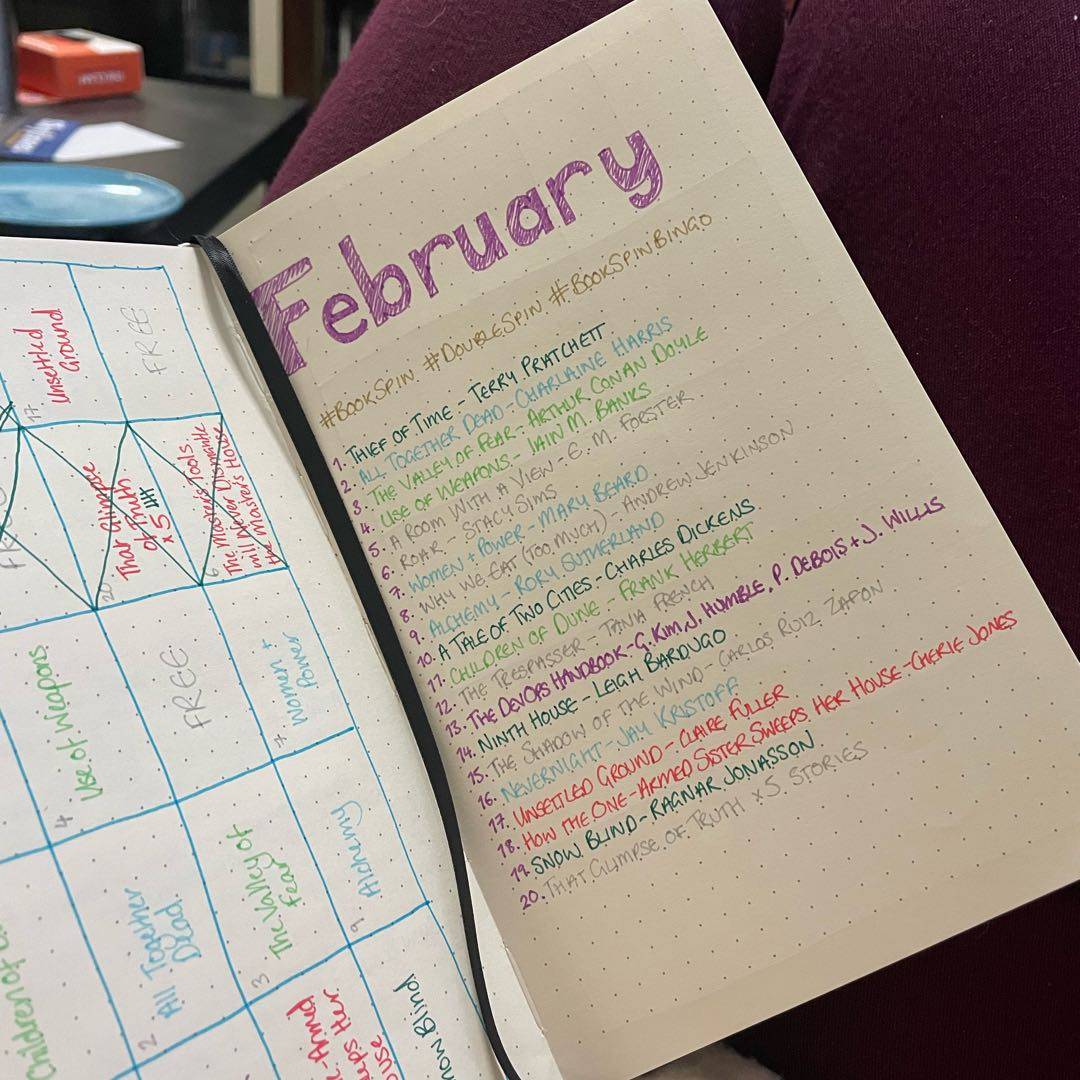 February
#BOOKSPIN #DOUBLESPIN #BOOKSPINBINGO
1. THIEF OF TIME - TERRY PRATCHETT
2. ALL TOGETHER DEAD - CHARLAINE HARRIS
3. THE VALLEY OF FEAR - ARTHUR CONAN DOYLE
4. USE OF WEAPONS - IAIN M. BANKS
5. A ROOM WITH A VIEW - E. M. FORSTER
6. ROAR - STACY SIMS
7. WOMEN + POWER - MARY BEARD
8. WHY WE EAT (TOO MUCH) - ANDREW JENKINSON
9. ALCHEMY - RORY SUTHERLAND
10. A TALE OF TWO CITIES - CHARLES DICKENS
11. CHILDREN OF DUNE - FRANK HERBERT
12. THE TRESPASSER - TANA FRENCH
13. THE DEVOPS HANDBOOK - G. KIM, J. HUMBLE, P. DEBOIS + J. WILLIS
14. NINTH HOUSE - LEIGH BARDUGO
15. THE SHADOW OF THE WIND - CARLOS RUIZ ZAFON
16. NEVERNIGHT - JAY KRISTOFF
17. UNSETTLED GROUND - CLAIRE FULLER
18. HOW THE ONE-ARMED SISTER SWEEPS HER HOUSE - CHERIE JONES
19. SNOW BLIND - RAGNAR JONASSON
20. THAT GLIMPSE OF TRUTH x 5 STORIES
17
Unsettled
Ground
FREE
20
That Glimpse
of Truth
x 5
6
The Master's Tools
will Never Dismantle
the Master's House
4
Use of Weapons
FREE
7
Women +
Power
Children of
2
All Together
Dead
3
The Valley of
Fear
9
Alchemy
Her
Blind